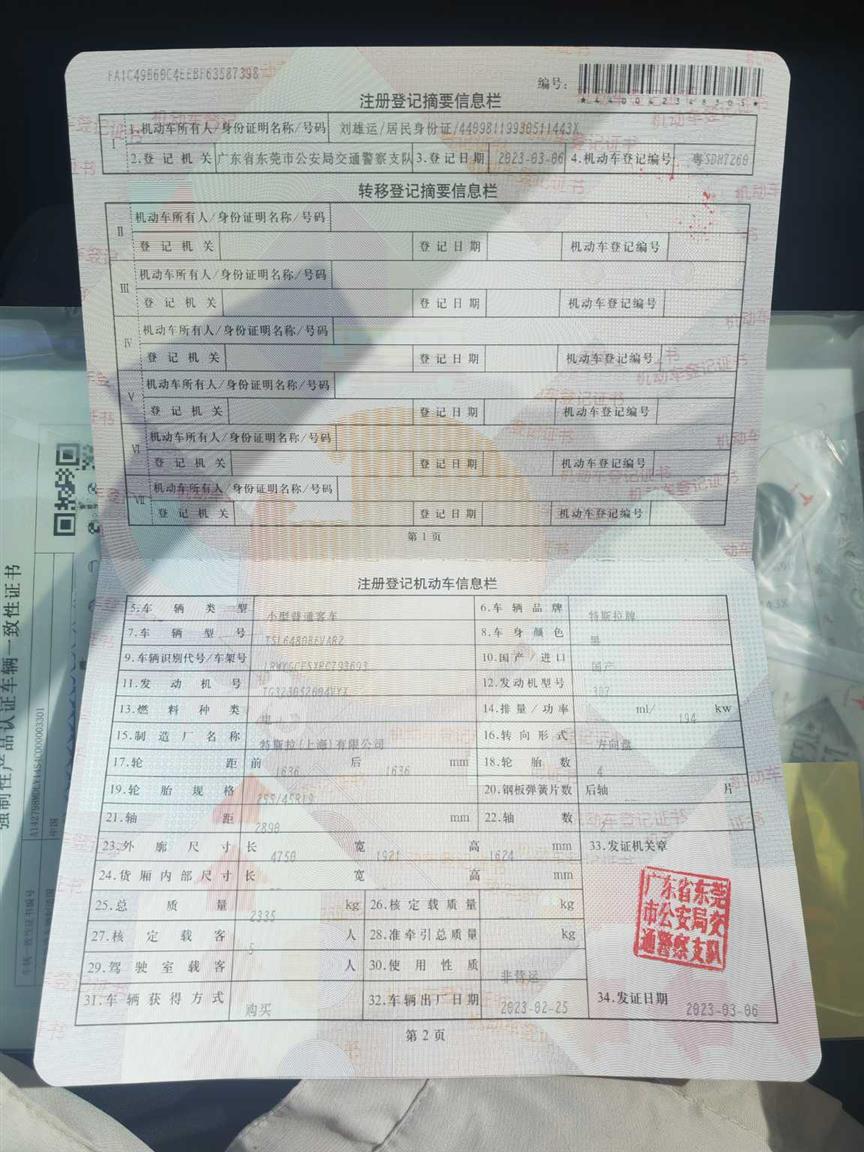 FA1C49B60C4EEBF63587398
编号:
*440042348305*
注册登记摘要信息栏
I
1.机动车所有人/身份证明名称/号码 刘雄运/居民身份证/44098119930511443X
2.登记机关 广东省东莞市公安局交通警察支队 3.登记日期 2023-03-06 4.机动车登记编号 粤SDH7260
转移登记摘要信息栏
II
机动车所有人/身份证明名称/号码
登记机关 登记日期 机动车登记编号
III
机动车所有人/身份证明名称/号码
登记机关 登记日期 机动车登记编号
IV
机动车所有人/身份证明名称/号码
登记机关 登记日期 机动车登记编号
V
机动车所有人/身份证明名称/号码
登记机关 登记日期 机动车登记编号
VI
机动车所有人/身份证明名称/号码
登记机关 登记日期 机动车登记编号
VII
机动车所有人/身份证明名称/号码
登记机关 登记日期 机动车登记编号
第1页
注册登记机动车信息栏
5.车辆类型 小型普通客车 6.车辆品牌 特斯拉牌
7.车辆型号 TSL6480BEVAR2 8.车身颜色 黑
9.车辆识别代号/车架号 10.国产/进口 国产
11.发动机号 TG323052604VYX 12.发动机型号 3D7
13.燃料种类 电 14.排量/功率 ml/ 194 kw
15.制造厂名称 特斯拉(上海)有限公司 16.转向形式 方向盘
17.轮距 前 1636 后 1636 mm 18.轮胎数 4
19.轮胎规格 255/45R19 20.钢板弹簧片数 后轴 片
21.轴距 2890 mm 22.轴数
23.外廓尺寸 长 4750 宽 1921 高 1624 mm 33.发证机关章
24.货厢内部尺寸 长 宽 高 mm
25.总质量 2335 kg 26.核定载质量 kg
27.核定载客 5 人 28.准牵引总质量 kg
29.驾驶室载客 人 30.使用性质 非营运
31.车辆获得方式 购买 32.车辆出厂日期 2023-02-25 34.发证日期 2023-03-06
广东省东莞
市公安局交
通警察支队
第2页
强制性产品认证车辆一致性证书
车辆一致性证书编号